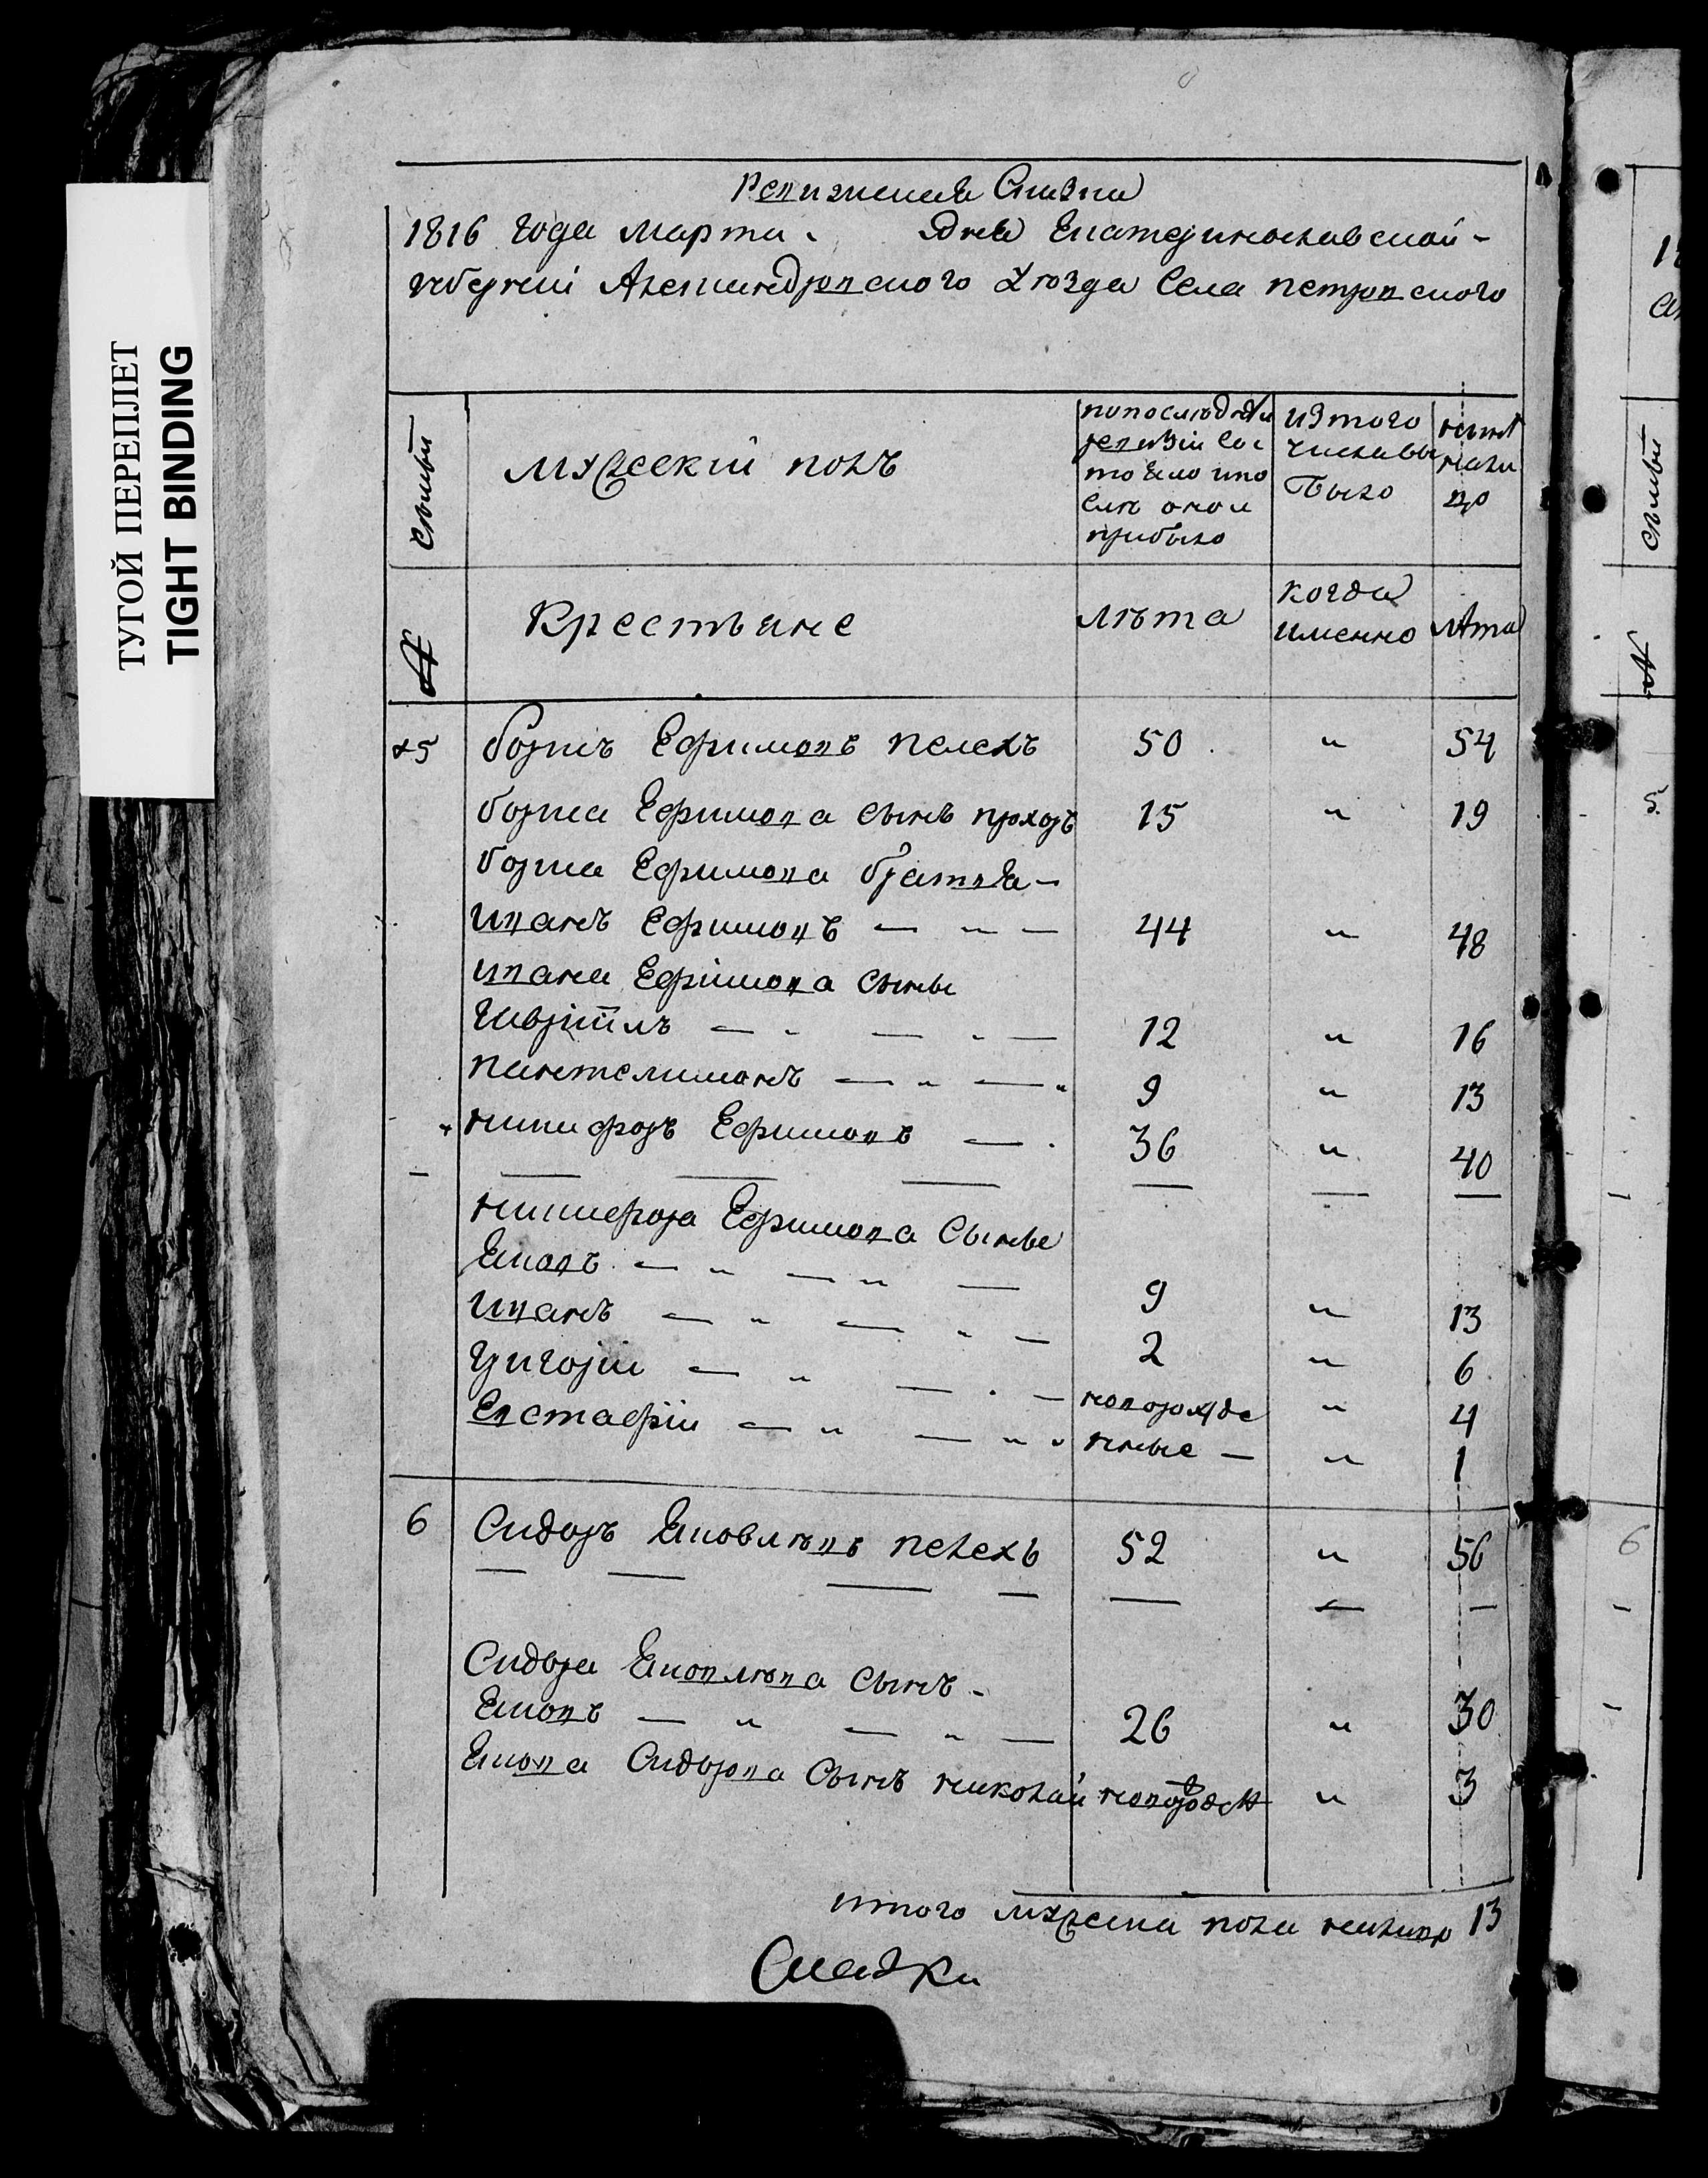 ТУГОЙ ПЕРЕПЛЕТ
TIGHT BINDING
Ревижская Сказка
1816 года марта дня Екатеринославской
губернии Александровского уѣзда Села петровского
Семьи
мужескій полъ
попослѣдней
ревизіи сос
тояло ипо
слѣ оной
прибыло
изтого
числавы
было
нынѣ
нали
цо
№
Крестьяне
лѣта
когда
именно
лѣта
5 борисъ Ефимовъ пелехъ 50 " 54
бориса Ефимова сынъ прохоръ 15 " 19
бориса Ефимова братья
иванъ Ефимовъ 44 " 48
ивана Ефимова сыны
Гаврiилъ 12 " 16
пантелимонъ 9 " 13
никифоръ Ефимовъ 36 " 40
никифора Ефимова Сыны
Яковъ 9 " 13
иванъ 2 " 6
григорiи новорожде " 4
Евстафiи нные " 1
6 Сидоръ Яковлѣвъ пелехъ 52 " 56
Сидора Яковлѣва сынъ
Яковъ 26 " 30
Якова Сидорова Сынъ николай новорожден " 3
итого мужеска пола налицо 13
Сказки
1
С
Семьи
№
5
6